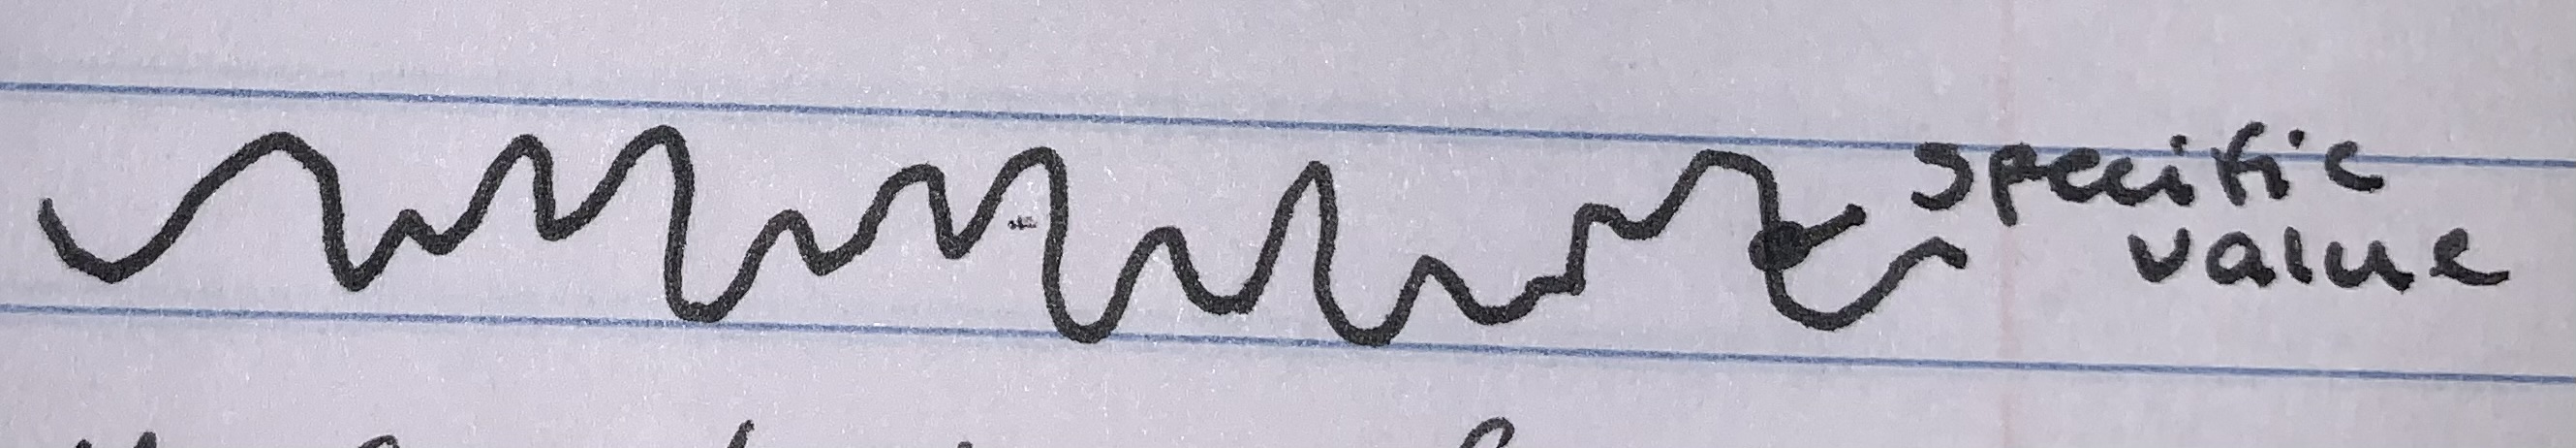 specific
value